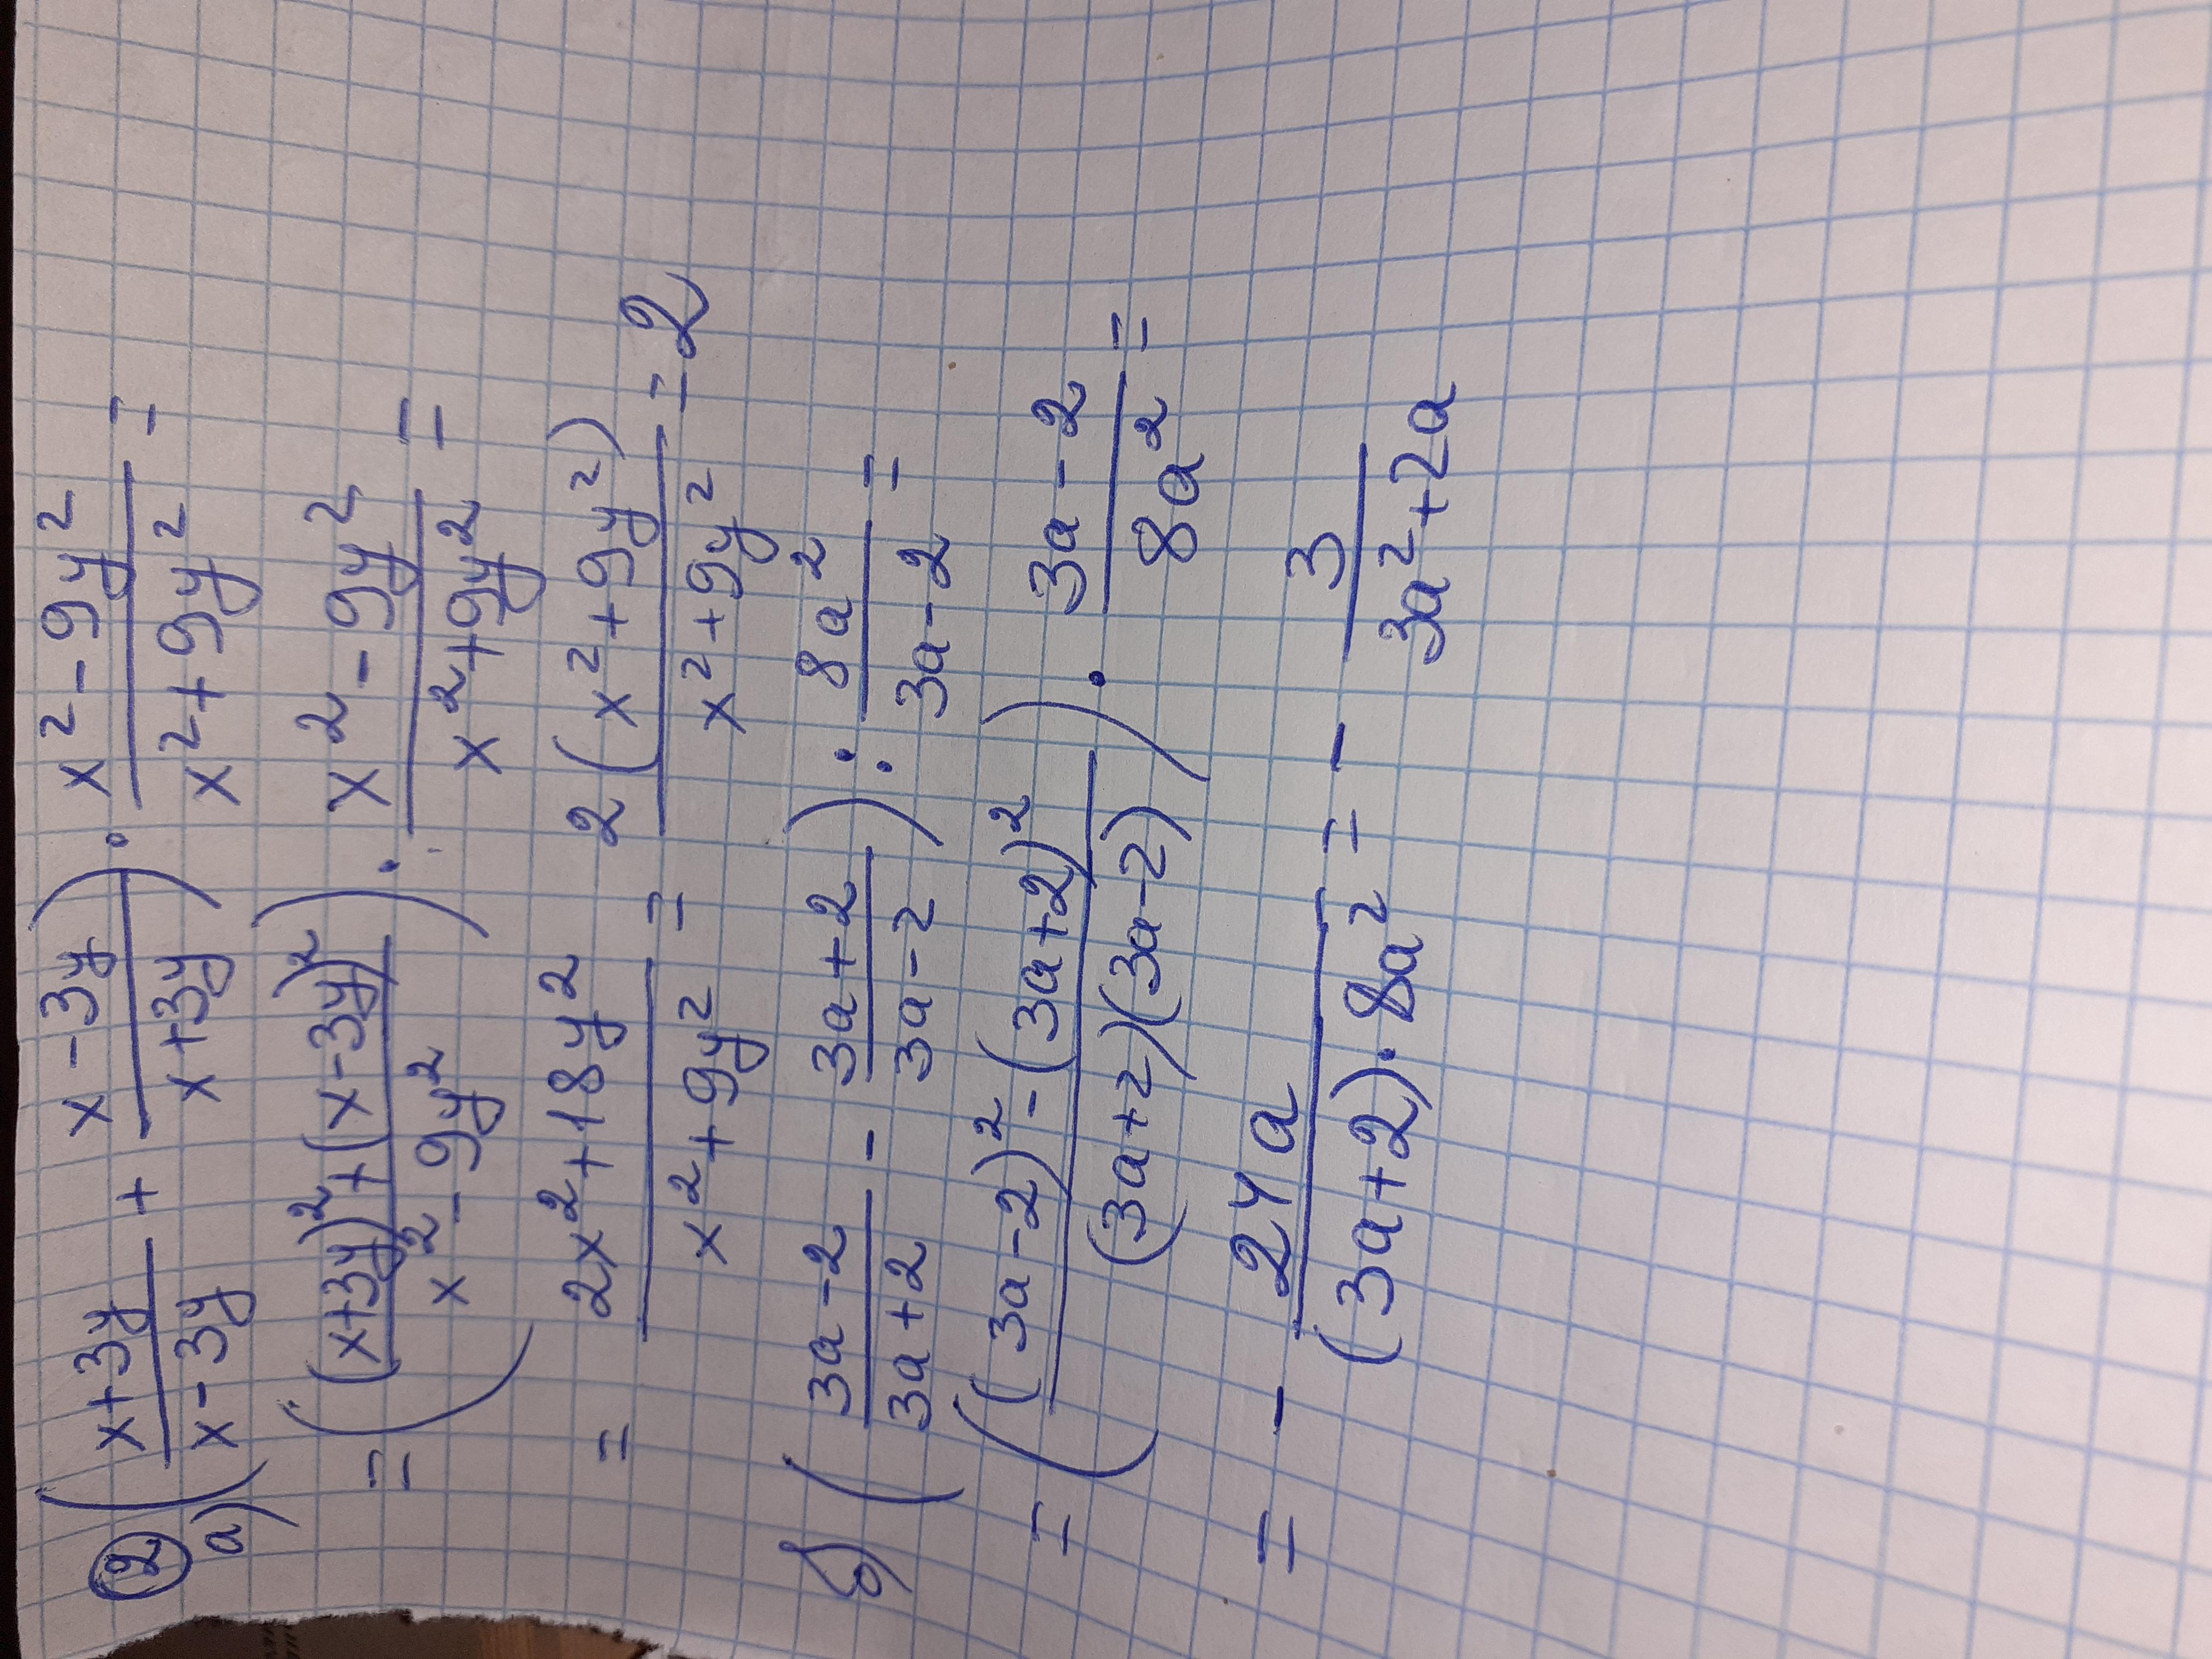 ② a) ((x+3y)/(x-3y) + (x-3y)/(x+3y)) · (x²-9y²)/(x²+9y²) =
= (((x+3y)²+(x-3y)²)/(x²-9y²)) · (x²-9y²)/(x²+9y²) =
= (2x²+18y²)/(x²+9y²) = 2(x²+9y²)/(x²+9y²) = 2
б) ((3a-2)/(3a+2) - (3a+2)/(3a-2)) : 8a²/(3a-2) =
= (((3a-2)²-(3a+2)²)/((3a+2)(3a-2))) · (3a-2)/8a² =
= - 24a/((3a+2)·8a²) = - 3/(3a²+2a)